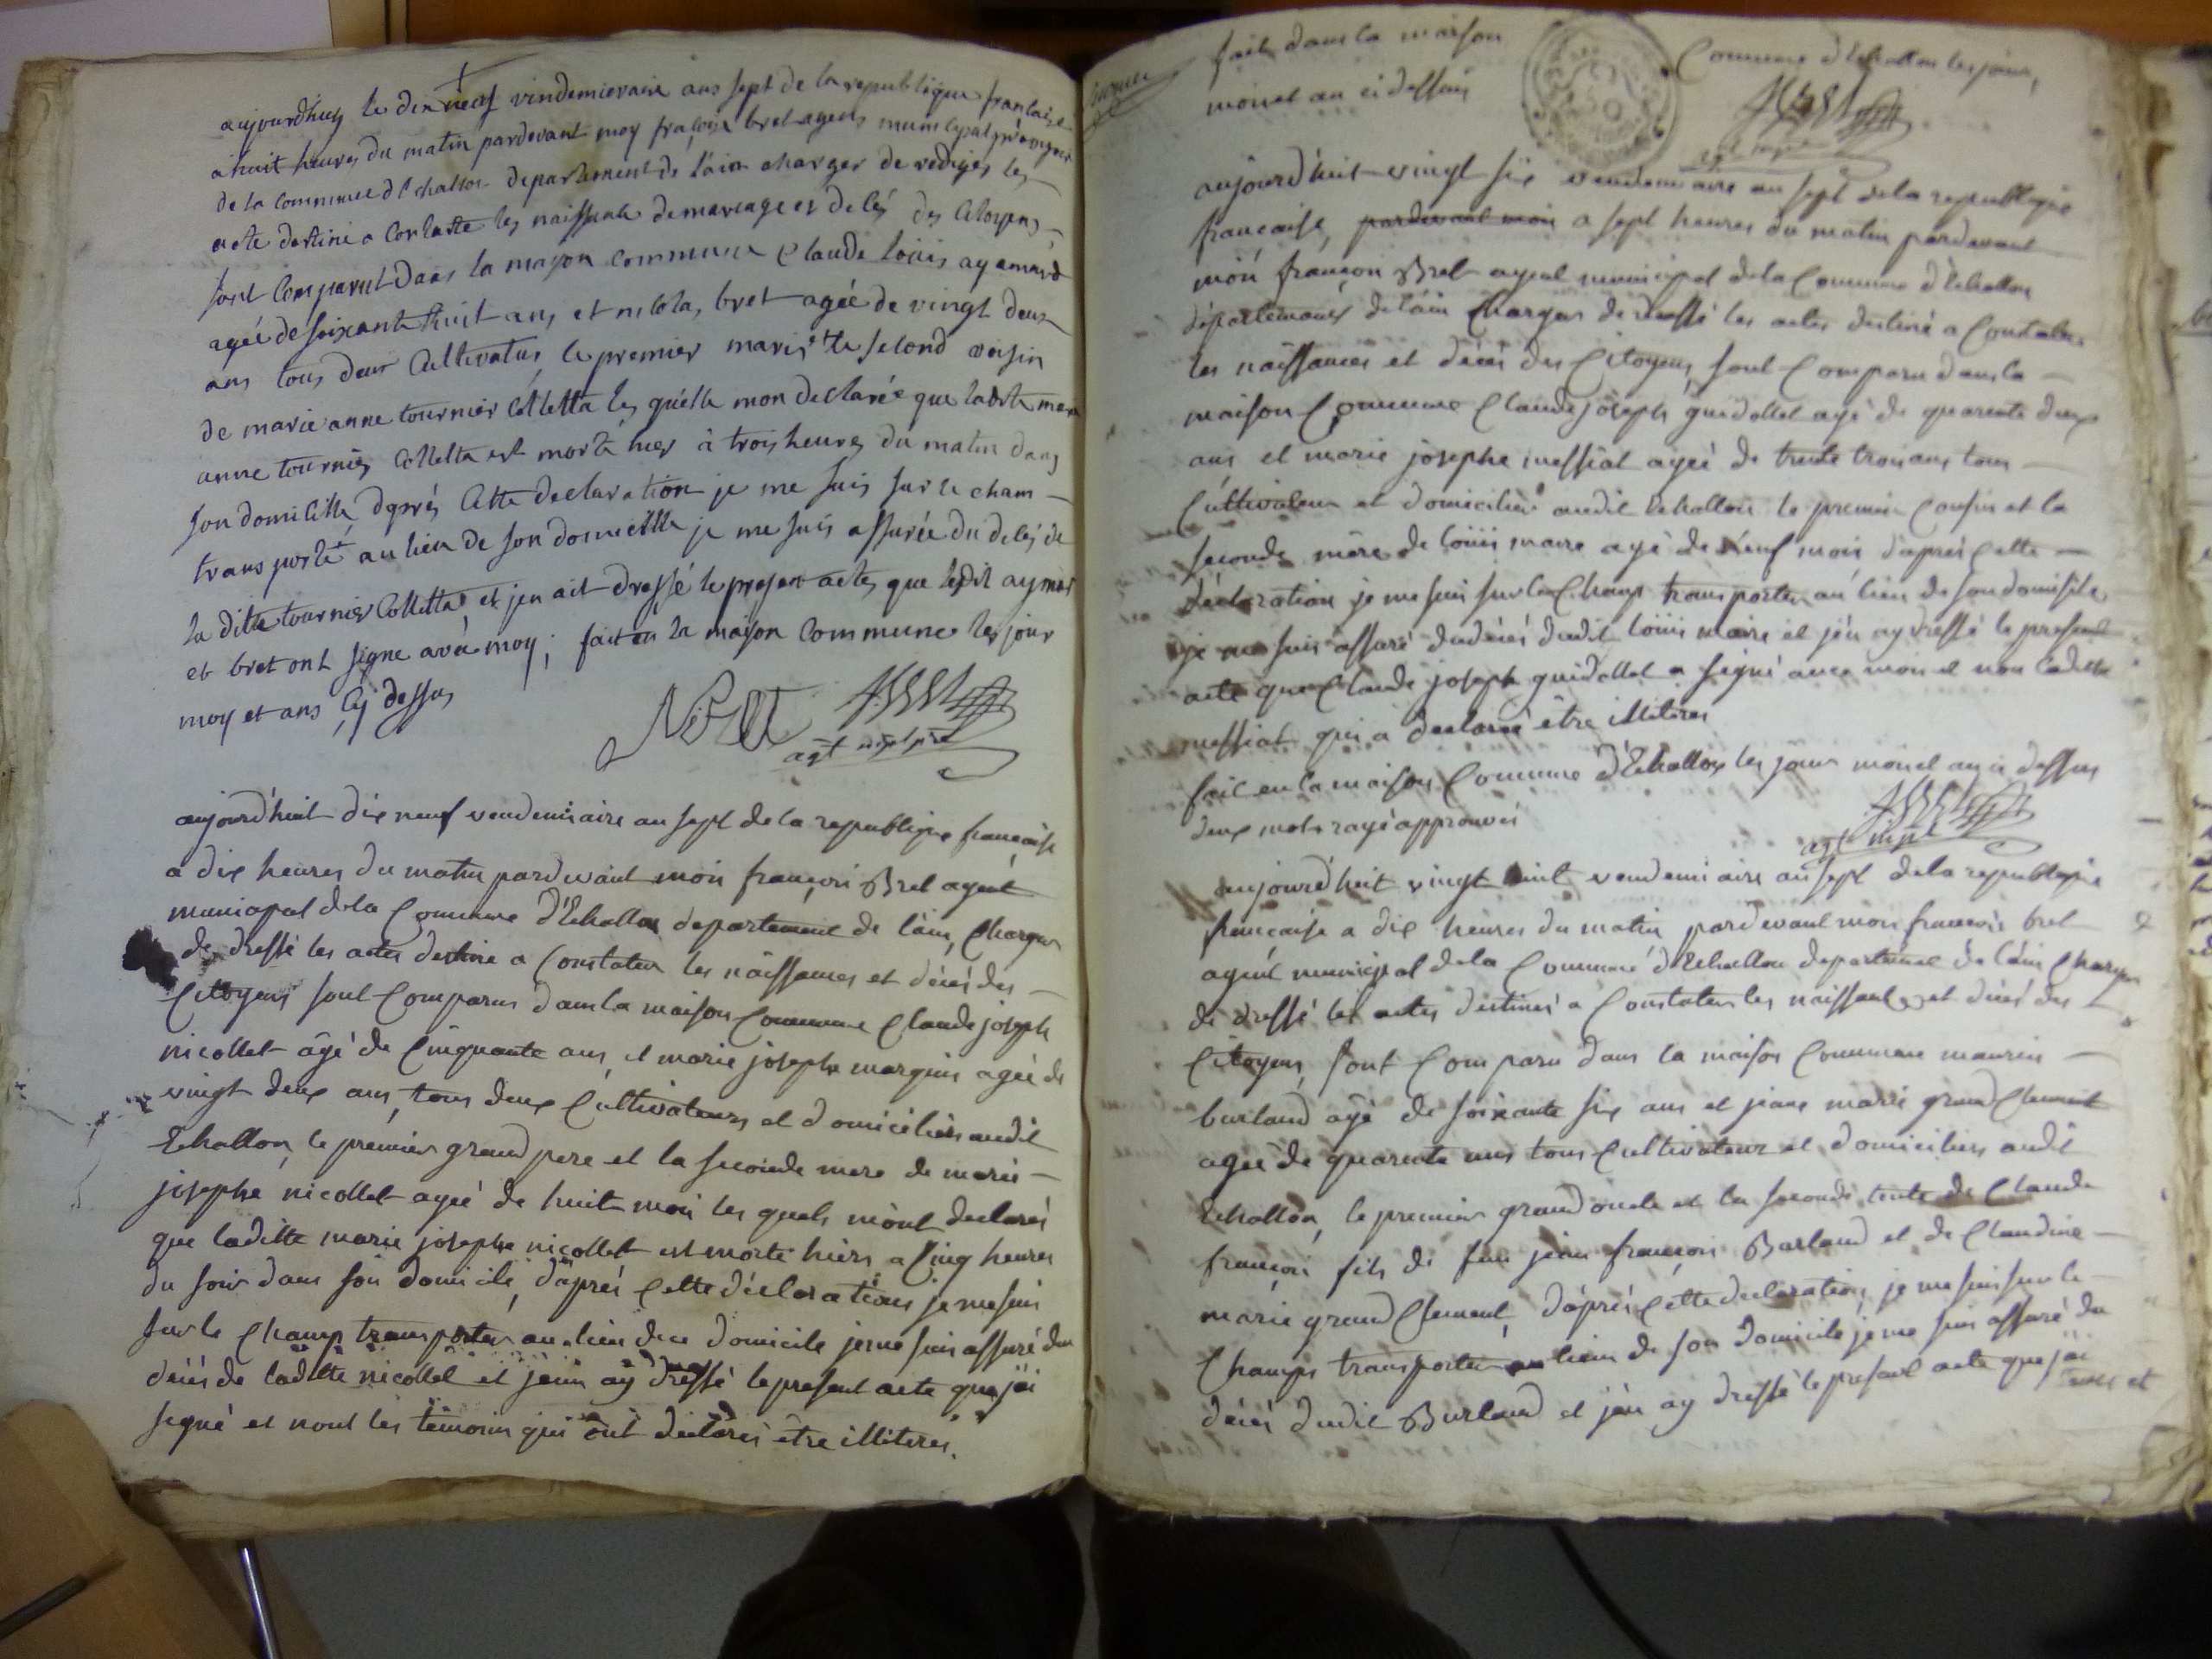 aujourdhuy le dix neuf vindemieraire ans sept de la republique francaise
a huit heures du matin pardevant moy fraçois bret agent municipal
de la commune d'Echallon departement de l'ain charger de rediger les
acte destine a constaté les naissance de mareage et deces des Citoyens
sont comparut dans la mayson commune Claude louis aymard
agée de soixant huit ans et nicolas bret agée de vingt deux
ans tous deux Cultivatus, le premier maris et le second voisin
de marie anne tournier Colletta les quelle mon declarée que ladite marie
anne tournier Colletta est morte hier à trois heures du matin dans
son domicille dgprés Cette declaration je me suis sur le cham
transporté au lieu de son domicille je me suis assurée du deces de
la ditte tournier Colletta et jen ait dressé le present actes que ledit aymar
et bret ont signe avec moy ; fait en la mayson commune les jour
moy et ans cy dessus
N Bret
agt mpl
aujourd'huit dix neuf vendemiaire an sept de la republique francaise
a dix heures du matin pardevant moi françois Bret agent
municipal de la Commune d'Echallon departement de l'ain, Charger
de dressé les actes destine a Constater les naissances et décés des
Citoyens sont Comparus dans la maison Commune Claude joseph
nicollet âgé de Cinquante ans et marie josephe marquis agée de
vingt deux ans, tous deux Cultivateurs et domiciliés audit
Echallon, le premier grand pere et la seconde mere de marie
josephe nicollet agée de huit mois les quels m'ont declarés
que laditte marie josephe nicollet est morte hiers a Cinq heures
du soir dans son domicile, d'aprés Cette déclaration je me suis
sur le Champ transporter au lieu de ce domicile je me suis assuré du
décés de laditte nicollet et j'en ay dressé le present acte que j'ai
signé et nont les témoins qui ont déclarés être illiteres.
fait dans la maison Commune d'Echallon les jour,
mois et an ci dessus
aujourd'huit vingt six vendemiaire an sept de la republique
francaise, pardevant moi a sept heures du matin pardevant
moi françois Bret agent municipal de la Commune d'Echallon
département de l'ain Charger de dressé les actes destiné a Constater
les naissances et décés des Citoyens, sont Comparu dans la
maison Commune Claude joseph guidollet agé de quarente deux
ans et marie josephe messiat agée de trente trois ans tous
Cultivateur et domiciliés audit Echallon le premier Cousin et la
seconde mère de loüis maire agé de neuf mois d'aprés Cette
déclaration je me suis sur le Champ transporter au lieu de son domicile
je me suis assuré du décés dudit loüis maire et j'en ay dressé le present
acte que Claude joseph guidollet a signé avec moi et non ladite
messiat qui a declaré être illiteres
fait en la maison Commune d'Echallon les jour mois et an ci dessus
deux mots rayé approuvés
agt mpl
aujourd'huit vingt huit vendemiaire an sept de la republique
francaise a dix heures du matin pardevant moi françois bret
agent municipal de la Commune d'Echallon departement de l'ain Charger
de dressé les actes destinés a Constater les naissances et décés des
Citoyens, sont Comparu dans la maison Commune maurice
burland agé de soixante six ans et jeane marie grand Clement
agée de quarente ans tous Cultivateur et domiciliers audit
Echallon, le premier grand oncle et la seconde tente de Claude
françois fils de feu jean françois Burland et de Claudine
marie grand Clement, d'aprés Cette declaration, je me suis sur le
Champs transporter au lieu de son domicile je me suis assuré du
décés dudit Burland et j'en ay dressé le present acte que j'ai